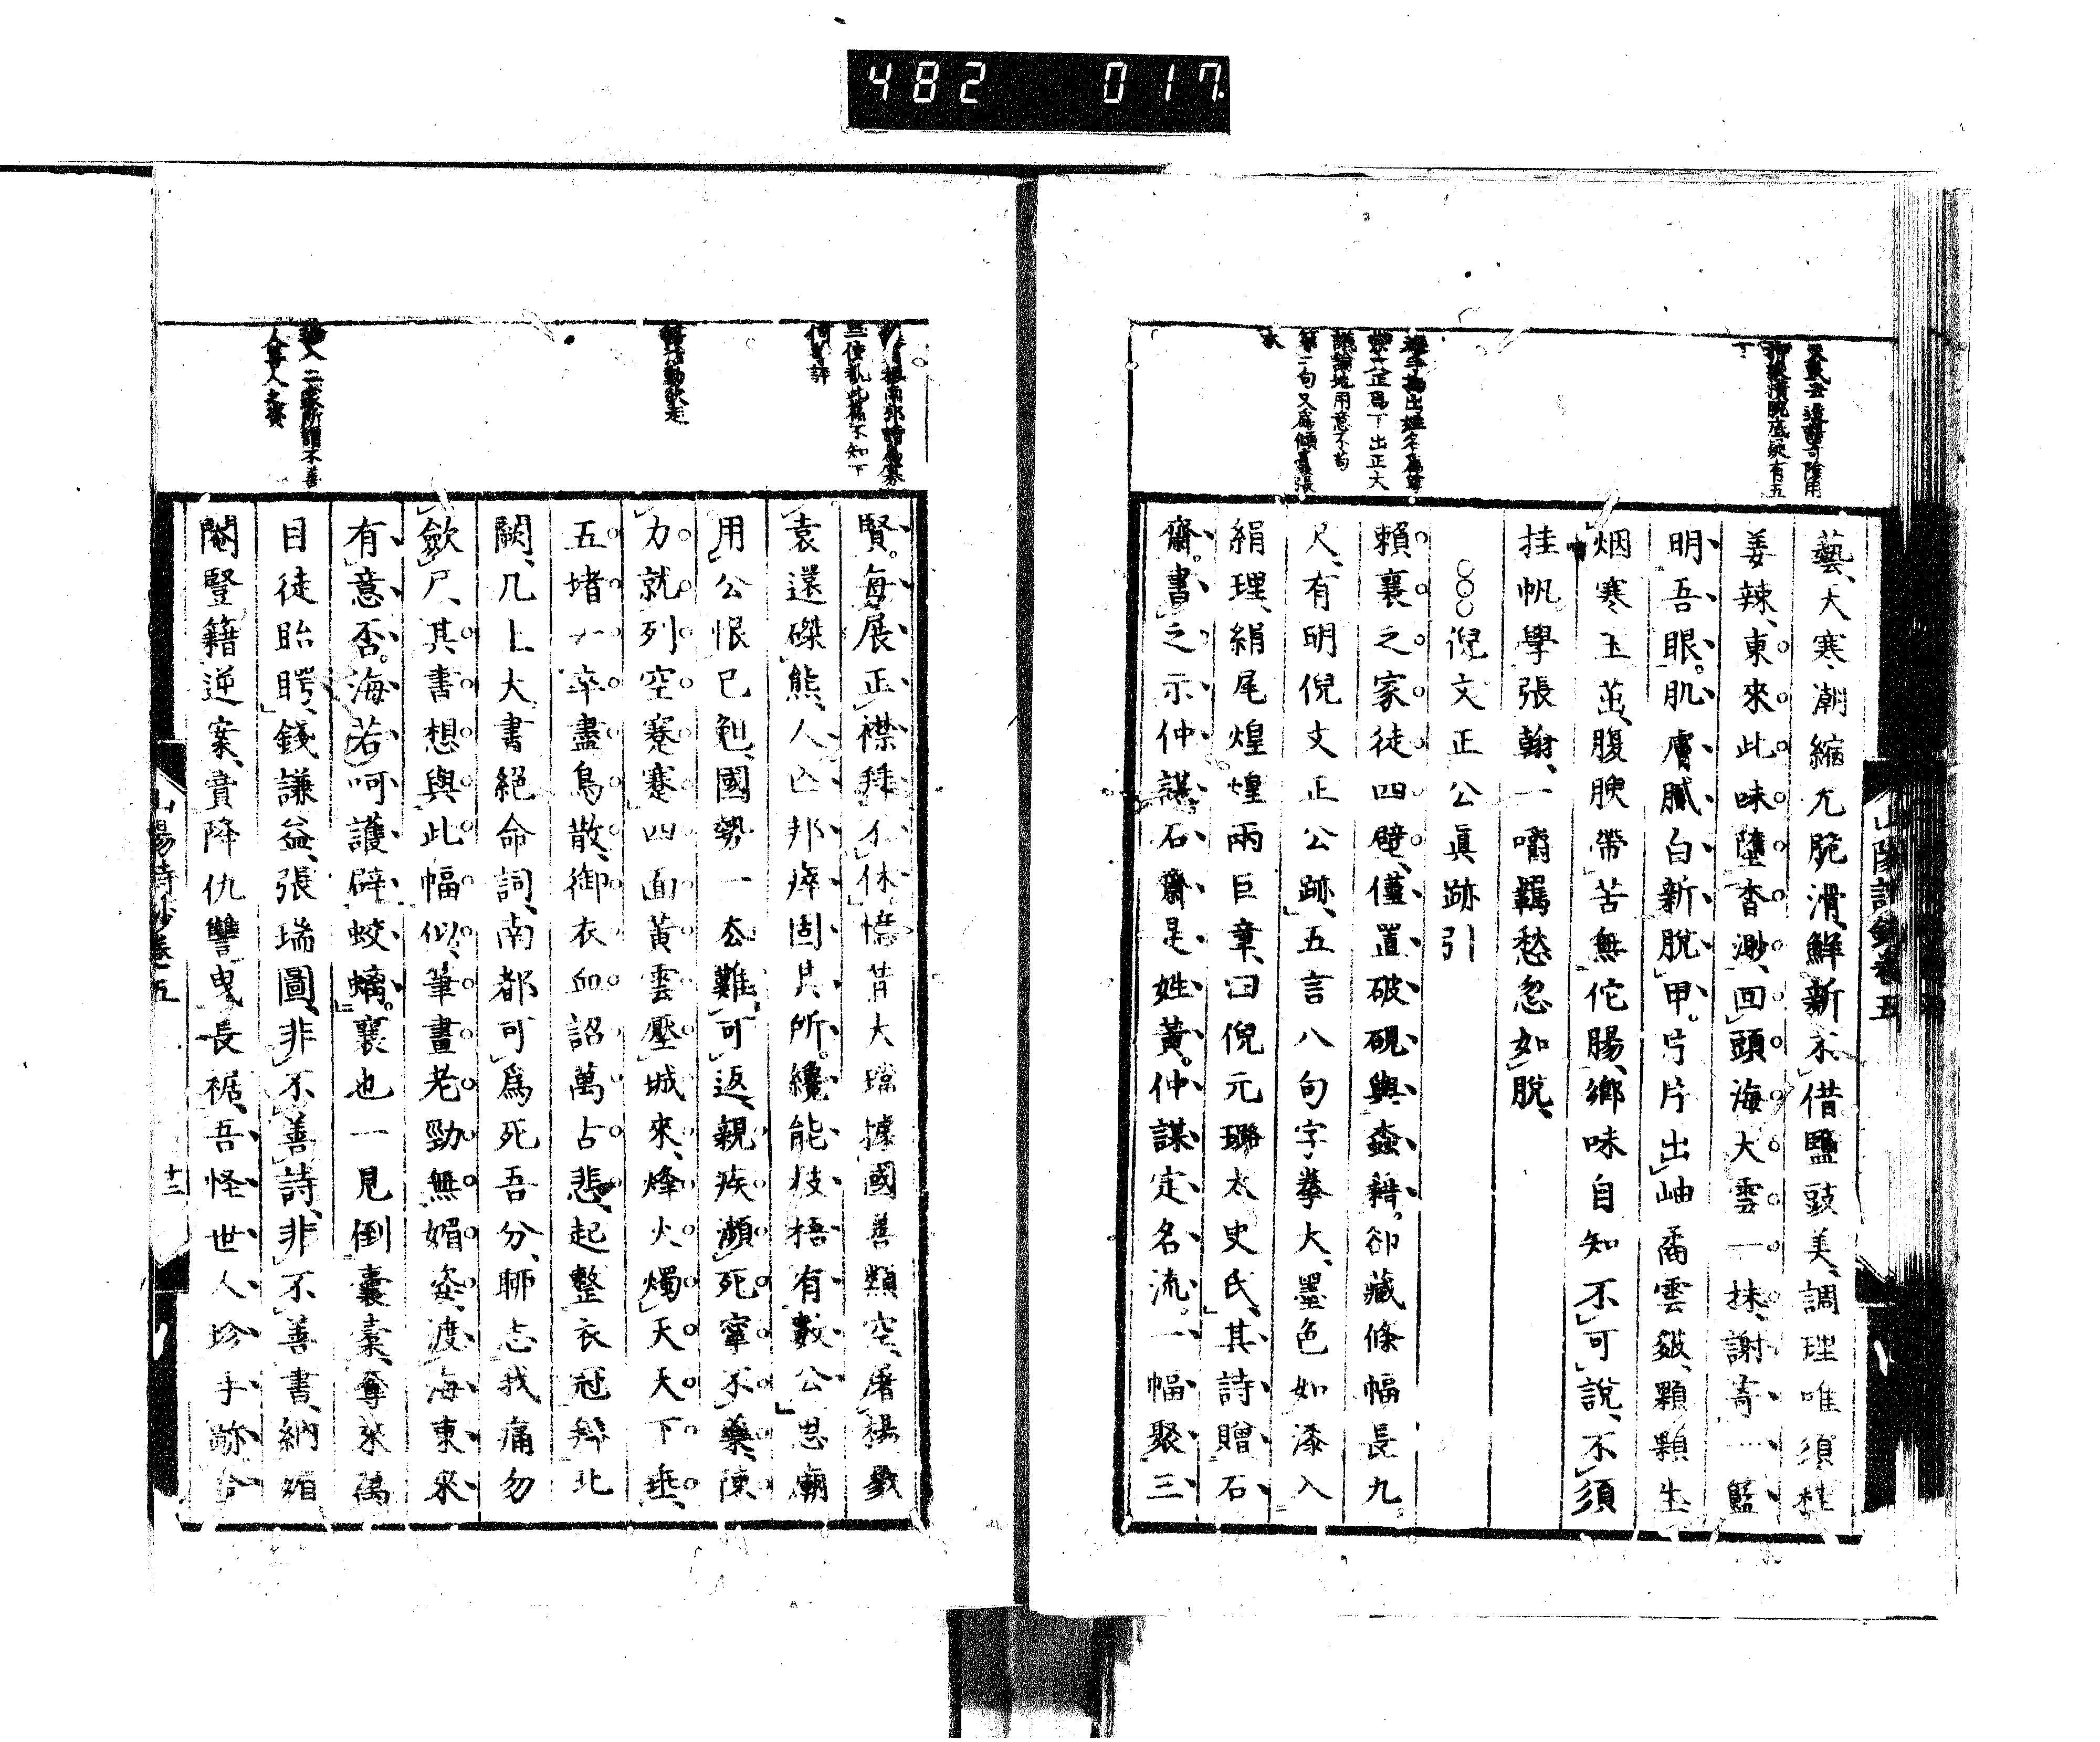 482 017
藝、大寒潮縮尤脆滑、鮮新不借鹽豉美、調理唯須桂
姜辣、東來此味墮杳渺、回頭海大雲一抹、謝寄一籃
明吾眼。肌膚膩白新脫甲。片片出岫矞雲皴、顆顆生
烟寒玉茁、腹腴帶苦無佗腸、鄉味自知不可說、不須
挂帆學張翰、一嚼羈愁忽如脫、
○○○倪文正公眞跡引
賴襄之家徒四壁、僅置破硯與蠹籍。卻藏條幅長九
尺、有明倪文正公跡、五言八句字拳大、墨色如漆入
絹理、絹尾煌煌兩巨章、曰倪元璐太史氏、其詩贈石
齋。書之示仲謀、石齋是姓黃。仲謀定名流。一幅聚三
山陽詩鈔卷五
賢。每展正襟拜不休、憶昔大璫據國善類空、屠楊戮
袁還磔熊、人亡邦瘁固其所。纔能枝梧有數公、思廟
用公恨已勉、國勢一去難可返、親疾瀕死寧不藥、陳
力就列空蹇蹇、四面黃雲壓城來、烽火燭天天下垂、
五堵一卒盡鳥散、御衣血詔萬古悲、起整衣冠拜北
闕、几上大書絕命詞、南都可爲死吾分、聊志我痛勿
斂尸、其書想與此幅似、筆畫老勁無媚姿、渡海東來
有意否。海若呵護辟蛟螭。襄也一見倒囊橐、奪來萬
目徒眙䁷、錢謙益、張瑞圖、非不善詩、非不善書、納媚
閹豎籍逆案、賣降仇讐曳長裾、吾怪世人珍手跡
山陽詩鈔卷五
十二